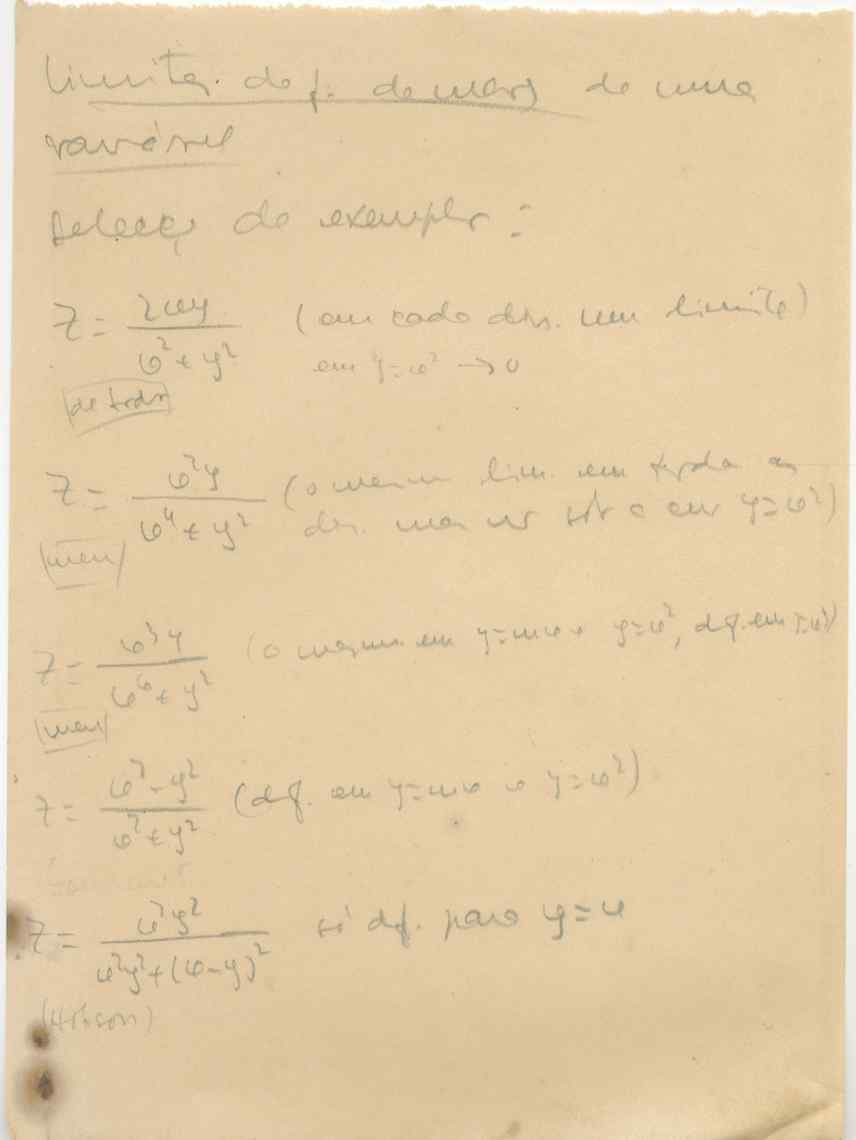 Limites de f. de mais de uma
variável
Selecç de exemplos :
Z = 2xy / x² + y² (em cada dir. um limite)
em y = x² → 0
de todos
Z = x²y / x⁴ + y² (o mesmo lim. em todas as
dir. mas não em y = x²)
meu
Z = x³y / x⁶ + y² (o mesmo em y = mx e y = x², dif. em y = x³)
meu
Z = x² - y² / x² + y² (dif. em y = mx e y = x²)
Z = x²y² / x²y² + (x - y)² só dif. para y = x